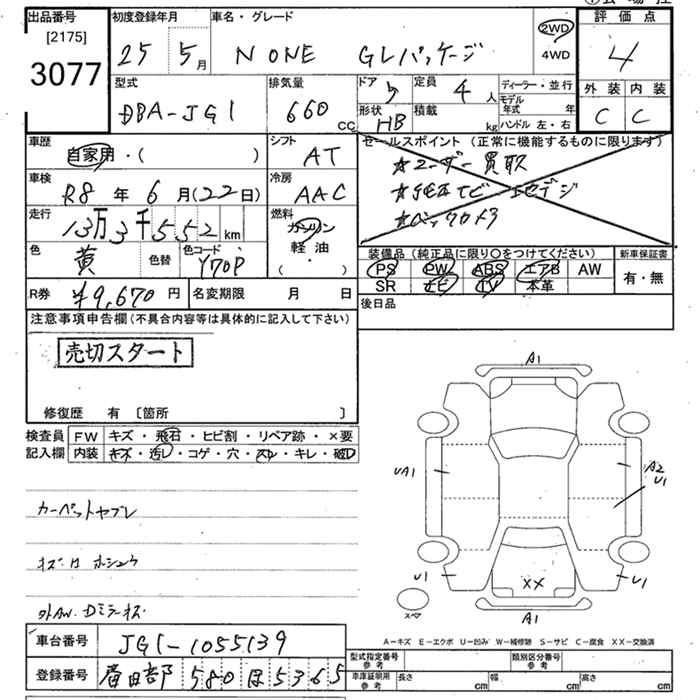 出品番号 初度登録年月 車名・グレード 評価点
[2175] 25 5月 N ONE GLパッケージ 2WD 4WD 4
3077
型式 排気量 ドア 5 定員 4人 ディーラー・並行 外装 内装
DBA-JG1 660 CC 形状 HB 積載 kg モデル年式 年 C C
ハンドル 左・右
車歴 シフト セールスポイント (正常に機能するものに限ります)
自家用・( ) AT ★ユーザー買取
車検 冷房
R8年6月(22日) AAC
走行 燃料 ★バックカメラ
13万3千552km ガソリン
色 色替 色コード 軽油 装備品(純正品に限り○をつけてください) 新車保証書
黄 Y70P ( ・ ) PS PW ABS エアB AW 有・無
R券 ¥9,670円 名変期限 月 日 SR ナビ TV 本革
注意事項申告欄(不具合内容等は具体的に記入して下さい) 後日品
売切スタート
修復歴 有 [箇所 ]
検査員 FW キズ・飛石・ヒビ割・リペア跡・×要
記入欄 内装 キズ・汚レ・コゲ・穴・スレ・キレ・破レ
A1
UA1 A2
U1
カーペットヤブレ
U1 XX U1
スペア A1
外AW. Dミラーキズ
A-キズ E-エクボ U-凹み W-補修跡 S-サビ C-腐食 XX-交換済
車台番号 JG1-1055139
型式指定番号 参考 類別区分番号 参考
登録番号 580 ほ 5365
車庫証明用 参考 長さ cm 幅 cm 高さ cm